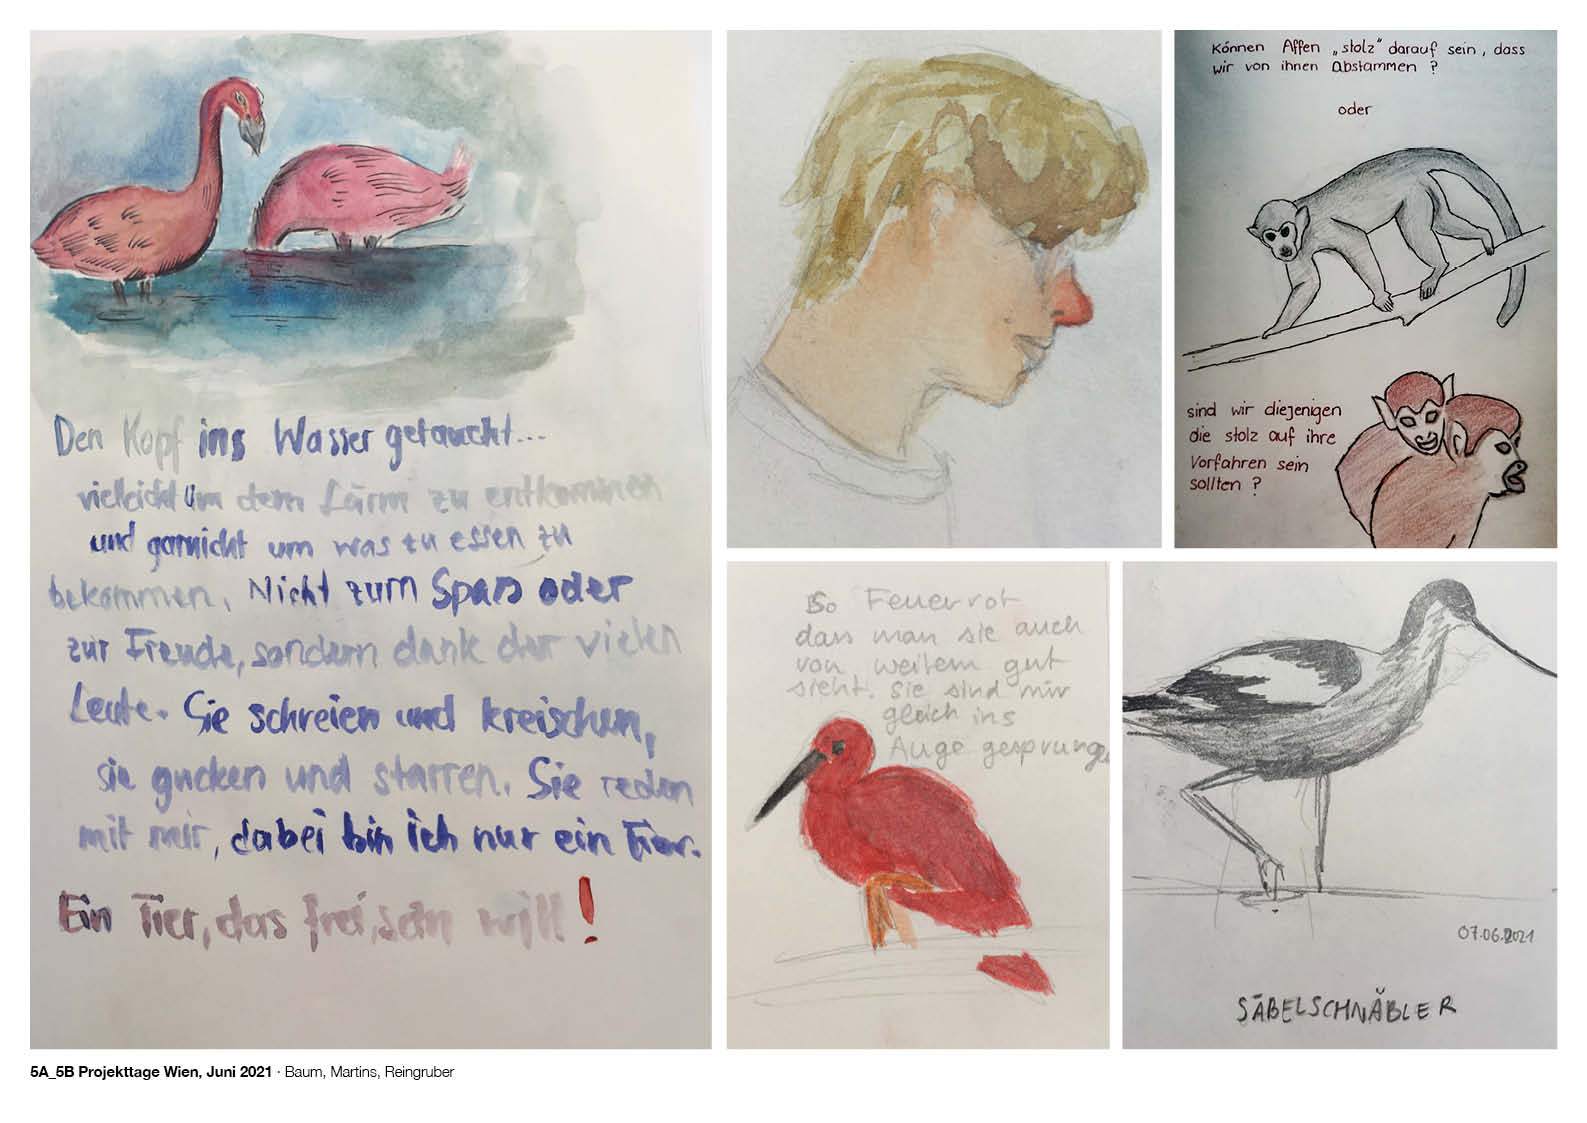 Den Kopf ins Wasser getaucht...
vielleicht um dem Lärm zu entkommen
und garnicht um was zu essen zu
bekommen. Nicht zum Spass oder
zur Freude, sondern dank der vielen
Leute. Sie schreien und kreischen,
sie gucken und starren. Sie reden
mit mir, dabei bin ich nur ein Tier.
Ein Tier, das frei sein will!
Können Affen „stolz“ darauf sein, dass
wir von ihnen abstammen ?
oder
sind wir diejenigen
die stolz auf ihre
Vorfahren sein
sollten ?
So Feuerrot
dass man sie auch
von weitem gut
sieht. Sie sind mir
gleich ins
Auge gesprungen
07.06.2021
SÄBELSCHNÄBLER
5A_5B Projekttage Wien, Juni 2021 · Baum, Martins, Reingruber